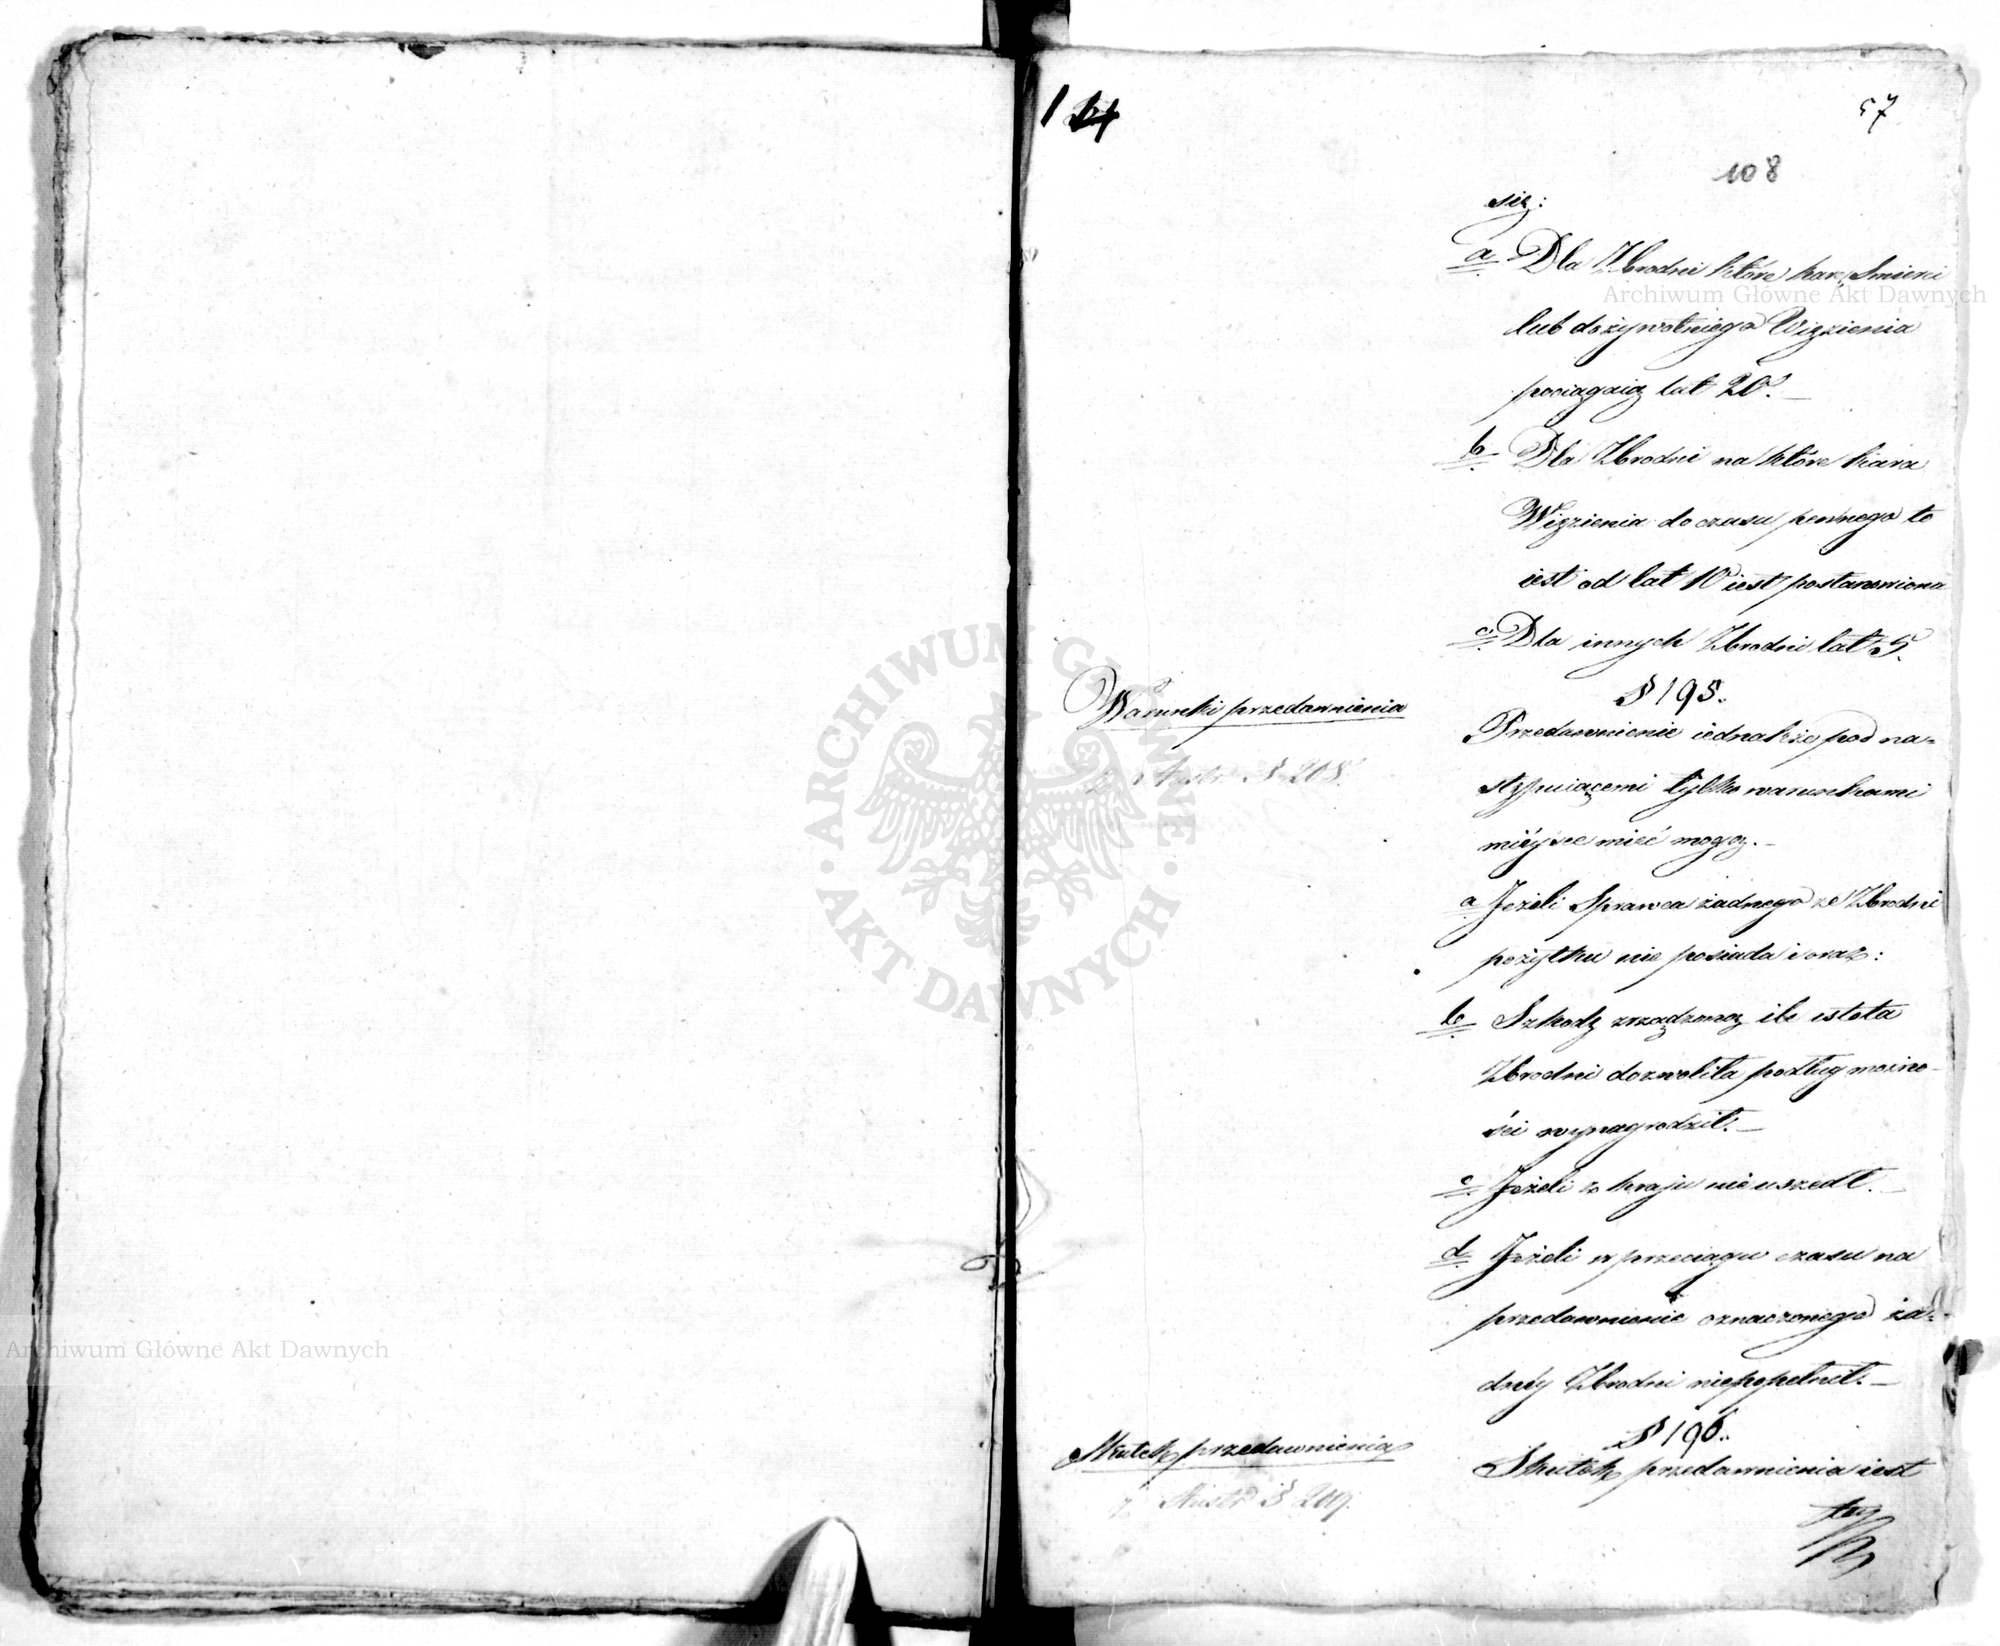 57
108
się:
a Dla Zbrodni które karę Smierci
lub dożywotniego Więzienia
pociągaią lat 20.
b Dla Zbrodni na które kara
Więzienia do czasu pewnego to
iest od lat 10 iest postanowiona
c. Dla innych Zbrodni lat 5.
§ 195.
Warunki przedawnienia
z Austr § 208.
Przedawnienie iednakże pod na=
stępuiącemi tylko warunkami
mieysce mieć mogą.
a Jeżeli Sprawca żadnego ze Zbrodni
pożytku nie posiada i oraz:
b Szkodę zrządzoną ile istota
Zbrodni dozwoliła podług możno-
ści wynagrodził.
c Jeżeli z kraju nie uszedł.
d Jeżeli w przeciągu czasu na
przedawnienie oznaczonego ża=
dnéy Zbrodni niepopełnił.
§ 196.
Skutek przedawnienia
z Austr § 209.
Skutek przedawnienia iest
Archiwum Główne Akt Dawnych
Archiwum Główne Akt Dawnych
ARCHIWUM GŁÓWNE AKT DAWNYCH